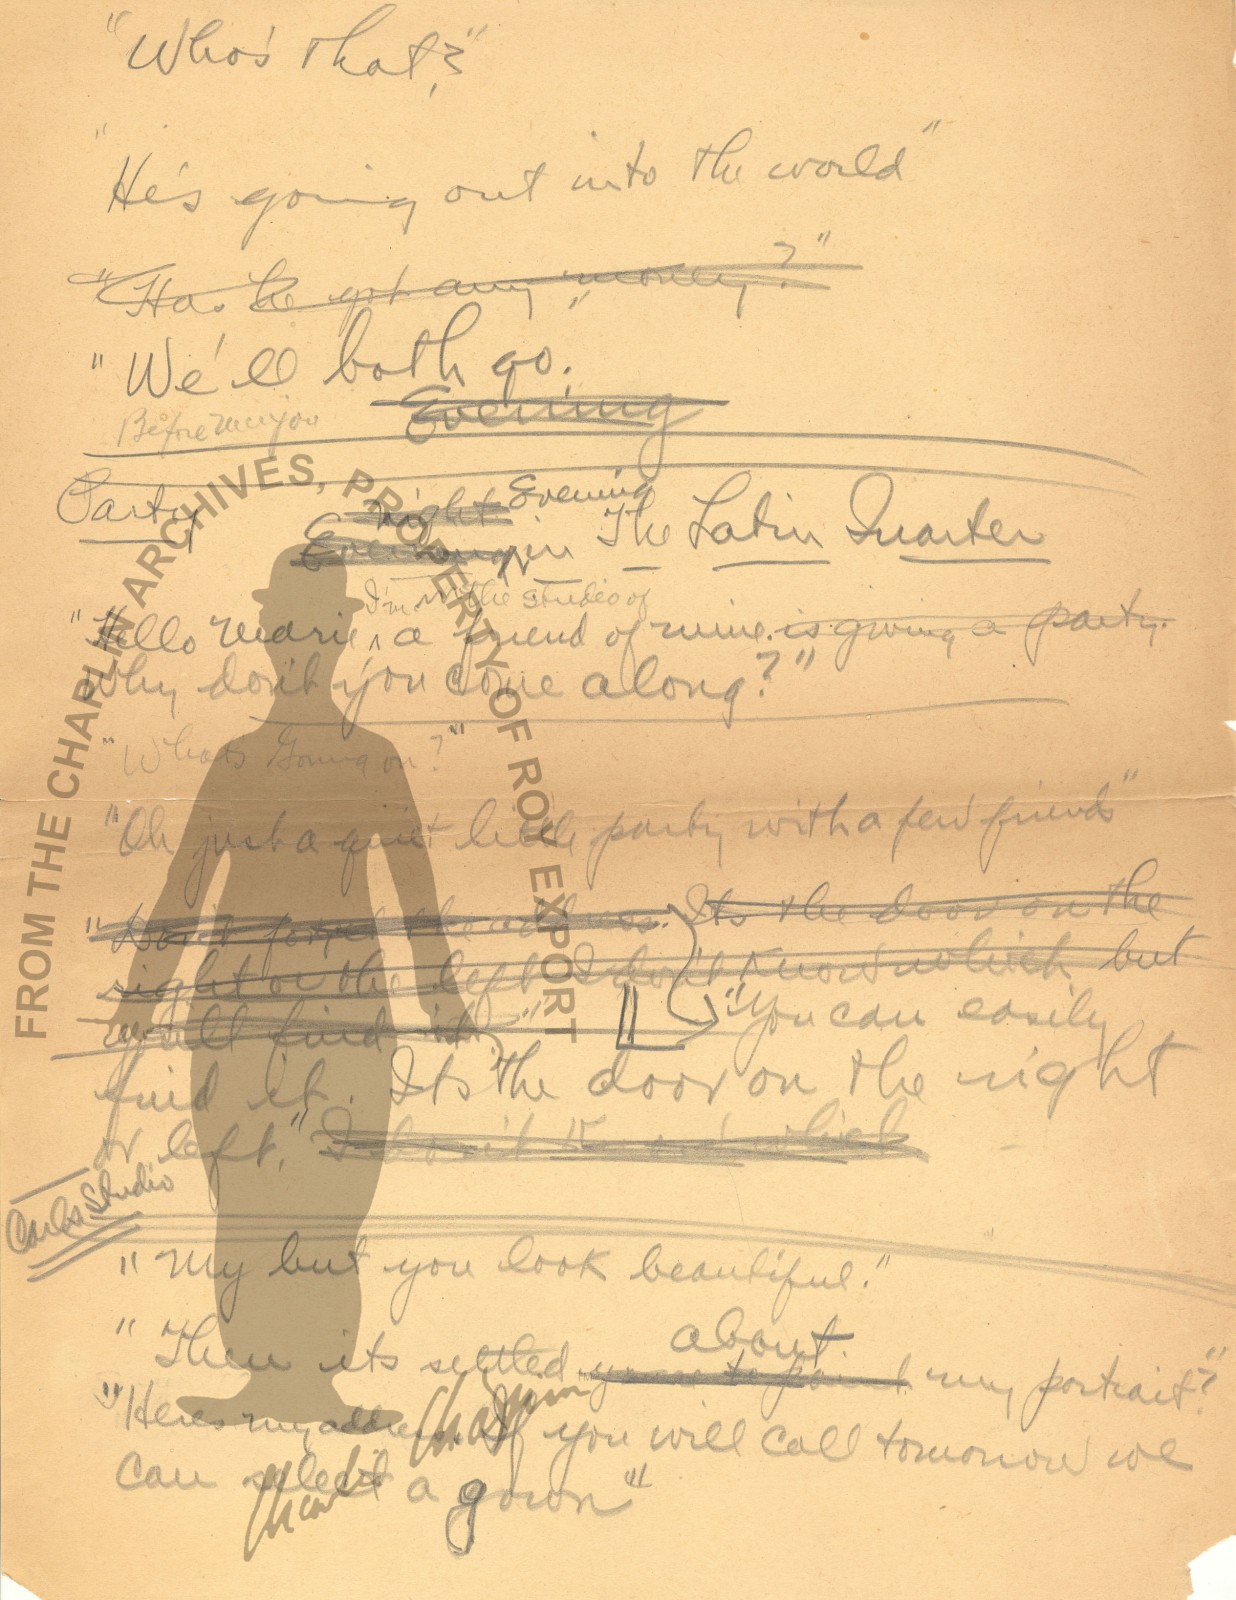 "Who's that?"
"He's going out into the world"
"Has he got any money?"
"We'll both go."
Evening
Before
Party
night Evening
Evening in The Latin Quarter
I'm in the studio of
"Hello Marie, a friend of mine is giving a party.
Why don't you come along?"
"Whats Going on?"
"Oh just a quiet little party with a few friends"
"Don't forget the address. Its the door on the
right or the left I don't know which but
you'll find it" "You can easily
find it. Its the door on the right
or left," I don't know which
Carlos Studio
"My but you look beautiful."
about
"Then its settled your to paint my portrait?"
"Heres my address. If you will call tomorrow we
can select a gown"
FROM THE CHAPLIN ARCHIVES, PROPERTY OF ROY EXPORT
Charlie Chaplin